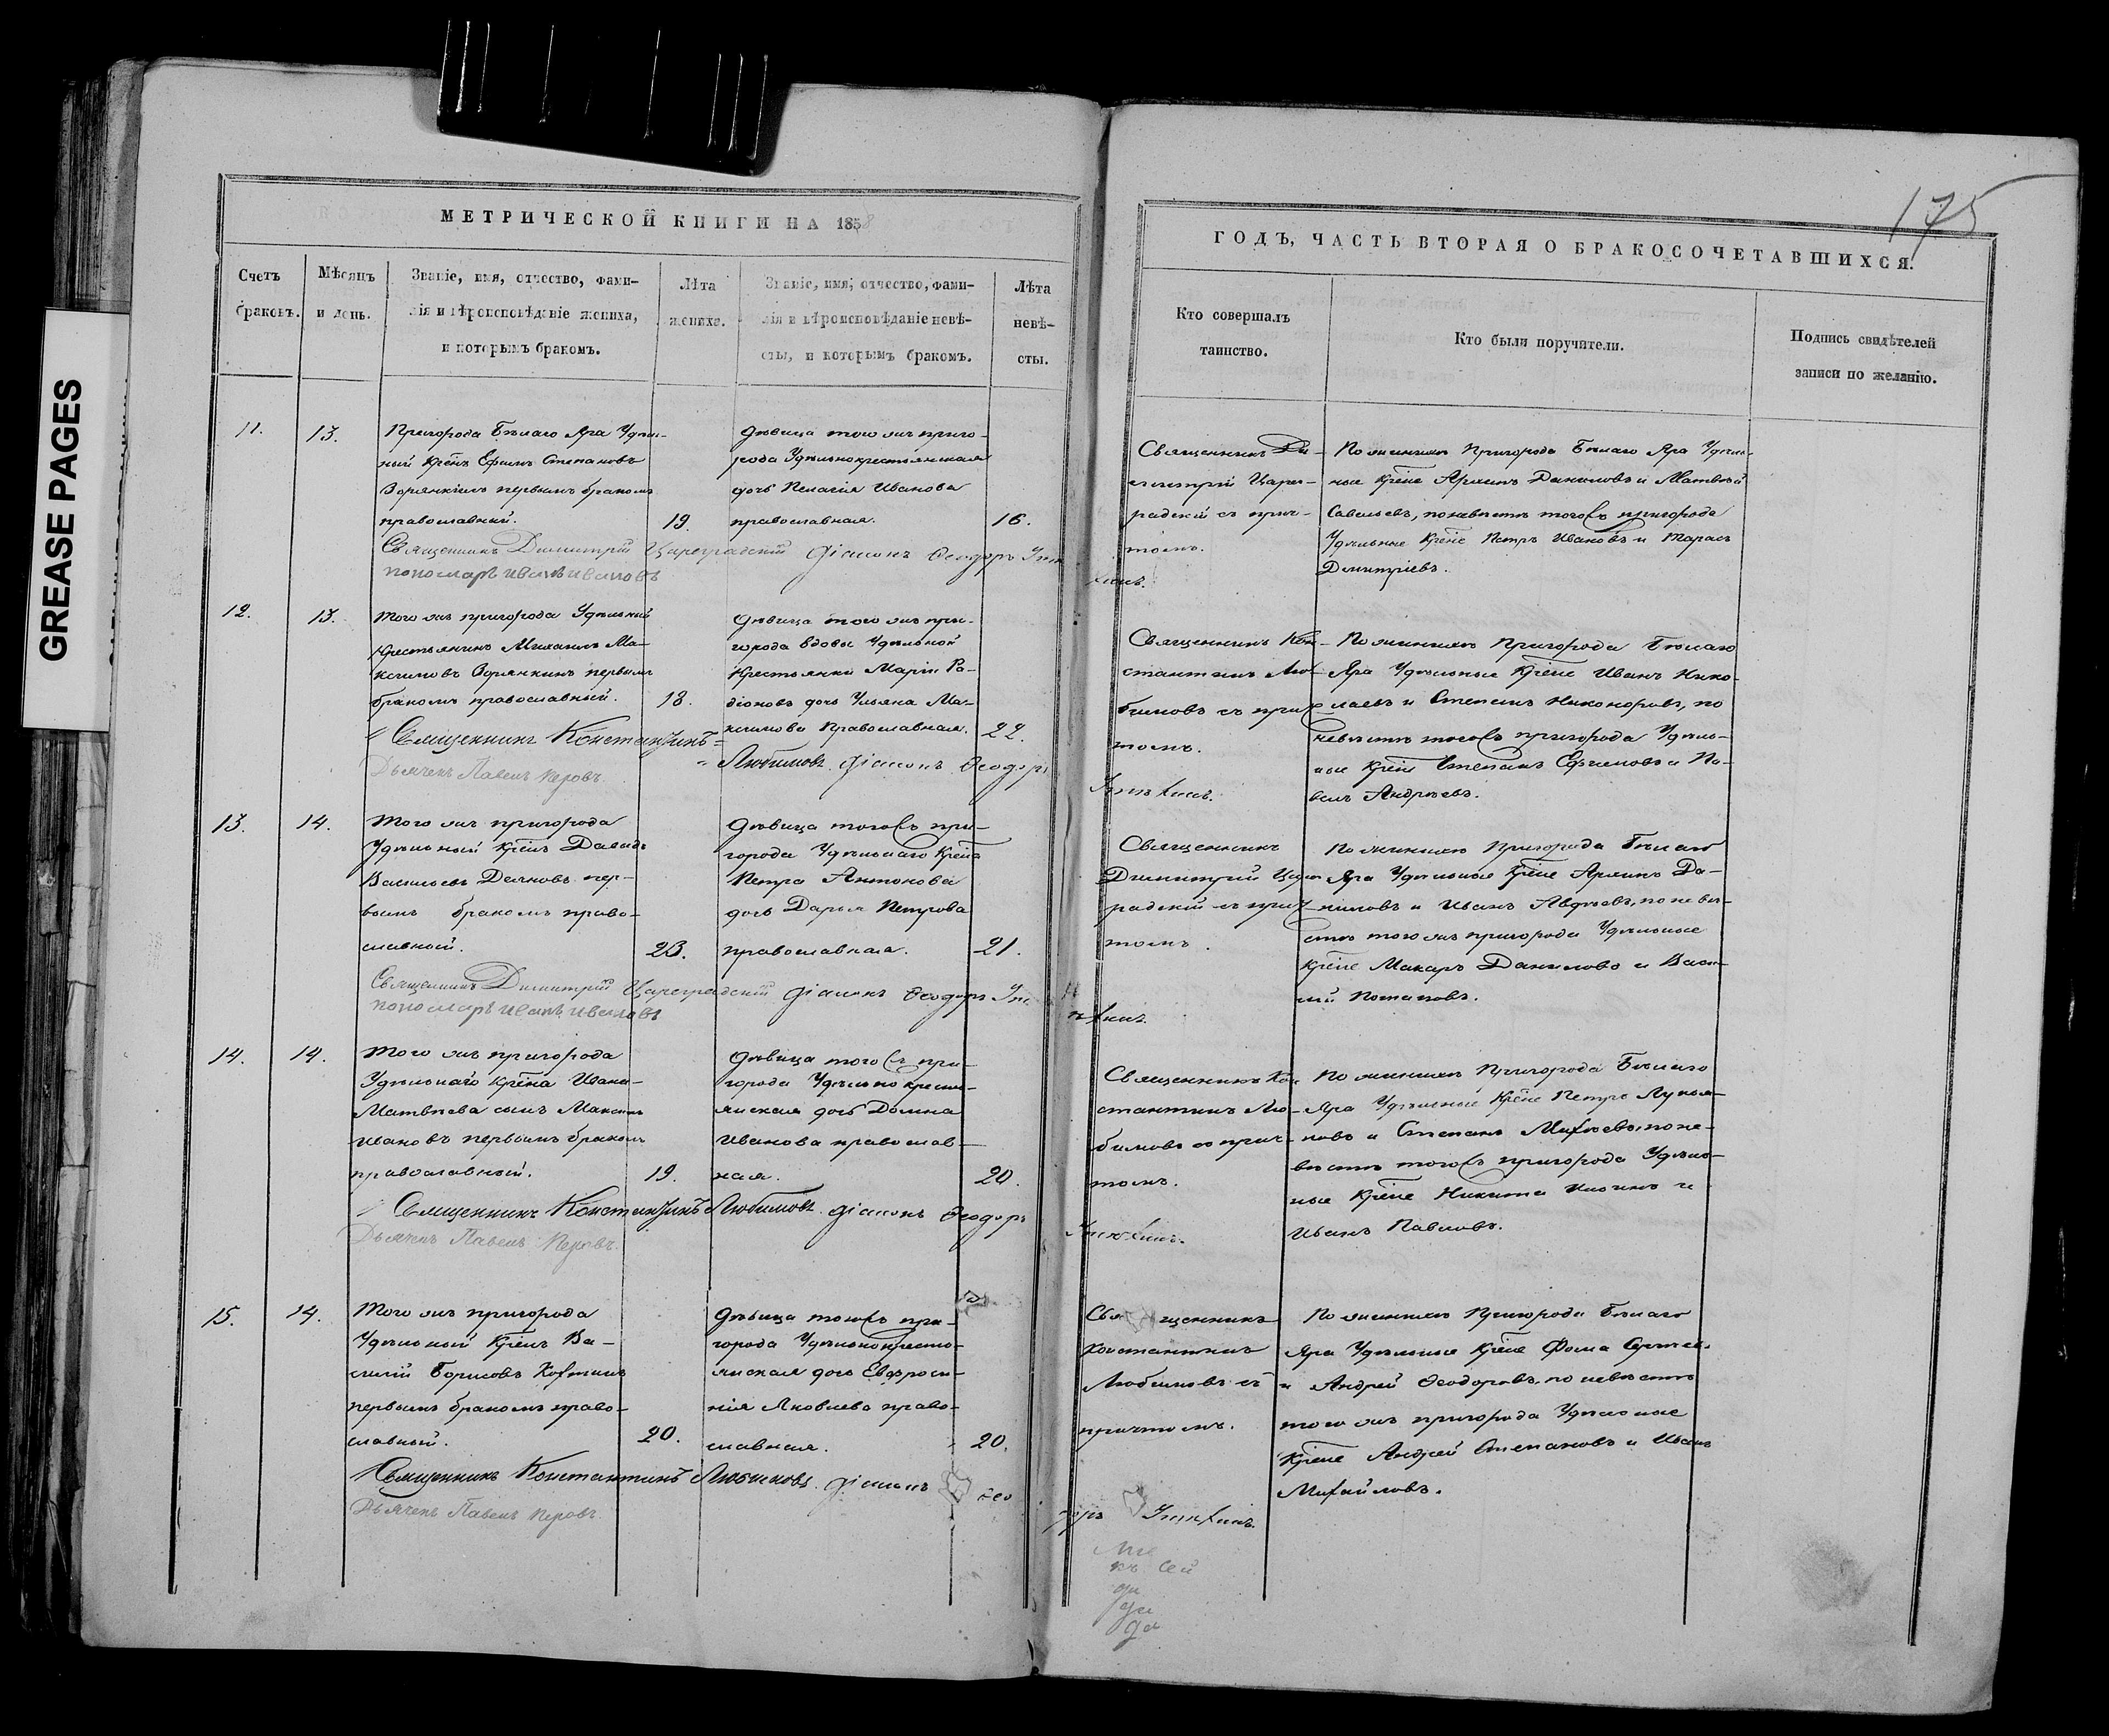 GREASE PAGES
175
МЕТРИЧЕСКОЙ КНИГИ НА 1858
ГОДЪ, ЧАСТЬ ВТОРАЯ О БРАКОСОЧЕТАВШИХСЯ.
Счетъ
браковъ.
Мѣсяцъ
и день.
Званіе, имя, отчество, фами-
лія и вѣроисповѣданіе жениха,
и которымъ бракомъ.
Лѣта
жениха.
Званіе, имя, отчество, фами-
лія и вѣроисповѣданіе невѣ-
сты, и которымъ бракомъ.
Лѣта
невѣ-
сты.
Кто совершалъ
таинство.
Кто были поручители.
Подпись свидѣтелей
записи по желанію.
11.
13.
Пригорода Бѣлаго Яра Удѣль-
ный Крѣнъ Ефимъ Степановъ
первымъ бракомъ
православный.
19.
Дѣвица того жъ приго-
рода Удѣльнокрестьянская
дочь Пелагія Иванова
православная.
16.
Священникъ Ди-
митрій Царе-
градскій съ прич-
томъ.
По женихѣ Пригорода Бѣлаго Яра Удѣль-
ные Крѣне Архипъ Даниловъ и Матвѣй
Савельевъ, по невѣстѣ тогожъ пригорода
Удѣльные Крѣне Петръ Ивановъ и Тарасъ
Димитріевъ.
Священникъ Димитрій Цареградскій Діаконъ Ѳеодоръ
пономарь Иванъ Ивановъ
12.
13.
Того жъ пригорода Удѣльный
Крестьянинъ Михаилъ Ма-
ксимовъ Зорянкинъ первымъ
бракомъ православный.
18.
Дѣвица того жъ при-
города вдовы Удѣльной
Крестьянки Маріи Ра-
діоновой дочь Ульяна Ма-
ксимова Православная.
22.
Священникъ Кон-
стантинъ Лю-
бимовъ съ прич-
томъ.
По женихѣ Пригорода Бѣлаго
Яра Удѣльные Крѣне Иванъ Нико-
лаевъ и Степанъ Никоноровъ, по
невѣстѣ тогожъ пригорода Удѣль-
ные Крѣне Степанъ Ефимовъ и Па-
велъ Андреевъ.
Священникъ Константинъ
Любимовъ Діаконъ Ѳеодоръ
Дьячекъ Павелъ Перовъ.
13.
14.
Того жъ пригорода
Удѣльный Крѣнъ Давидъ
Васильевъ Деяновъ пер-
вымъ бракомъ право-
славный.
23.
Дѣвица тогожъ при-
города Удѣльнаго Крѣна
Петра Антонова
дочь Дарья Петрова
православная.
21.
Священникъ
Димитрій Царе-
градскій съ прич-
томъ.
По женихѣ Пригорода Бѣлаго
Яра Удѣльные Крѣне Архипъ Да-
ниловъ и Иванъ Авдѣевъ, по невѣ-
стѣ того жъ пригорода Удѣльные
Крѣне Макаръ Даниловъ и Васи-
лій Потаповъ.
Священникъ Димитрій Цареградскій Діаконъ Ѳеодоръ
пономарь Иванъ Ивановъ
14.
14.
Того жъ пригорода
Удѣльнаго Крѣна Ивана
Матвѣева сынъ Максимъ
Ивановъ первымъ бракомъ
православный.
19.
Дѣвица тогожъ при-
города Удѣльно кресть-
янская дочь Домна
Иванова православ-
ная.
20.
Священникъ Кон-
стантинъ Лю-
бимовъ съ прич-
томъ.
По женихѣ Пригорода Бѣлаго
Яра Удѣльные Крѣне Петръ Лукья-
новъ и Степанъ Михѣевъ, по не-
вѣстѣ тогожъ пригорода Удѣль-
ные Крѣне Никита и
Иванъ Павловъ.
Священникъ Константинъ Любимовъ Діаконъ Ѳеодоръ
Дьячекъ Павелъ Перовъ.
15.
14.
Того жъ пригорода
Удѣльный Крѣнъ Ва-
силій Борисовъ
первымъ бракомъ право-
славный.
20.
Дѣвица тогожъ при-
города Удѣльнокресть-
янская дочь Евфроси-
нія Яковлева право-
славная.
20.
Священникъ
Константинъ
Любимовъ съ
причтомъ.
По женихѣ Пригорода Бѣлаго
Яра Удѣльные Крѣне Фома Сергѣевъ
и Андрей Ѳеодоровъ, по невѣстѣ
того жъ пригорода Удѣльные
Крѣне Андрей Степановъ и Иванъ
Михайловъ.
Священникъ Константинъ Любимовъ Діаконъ Ѳео
доръ
Дьячекъ Павелъ Перовъ.